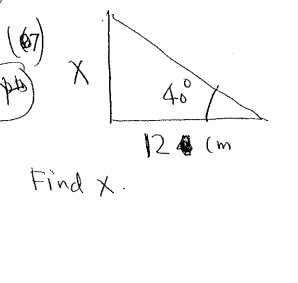 X
40°
12 cm
Find X.